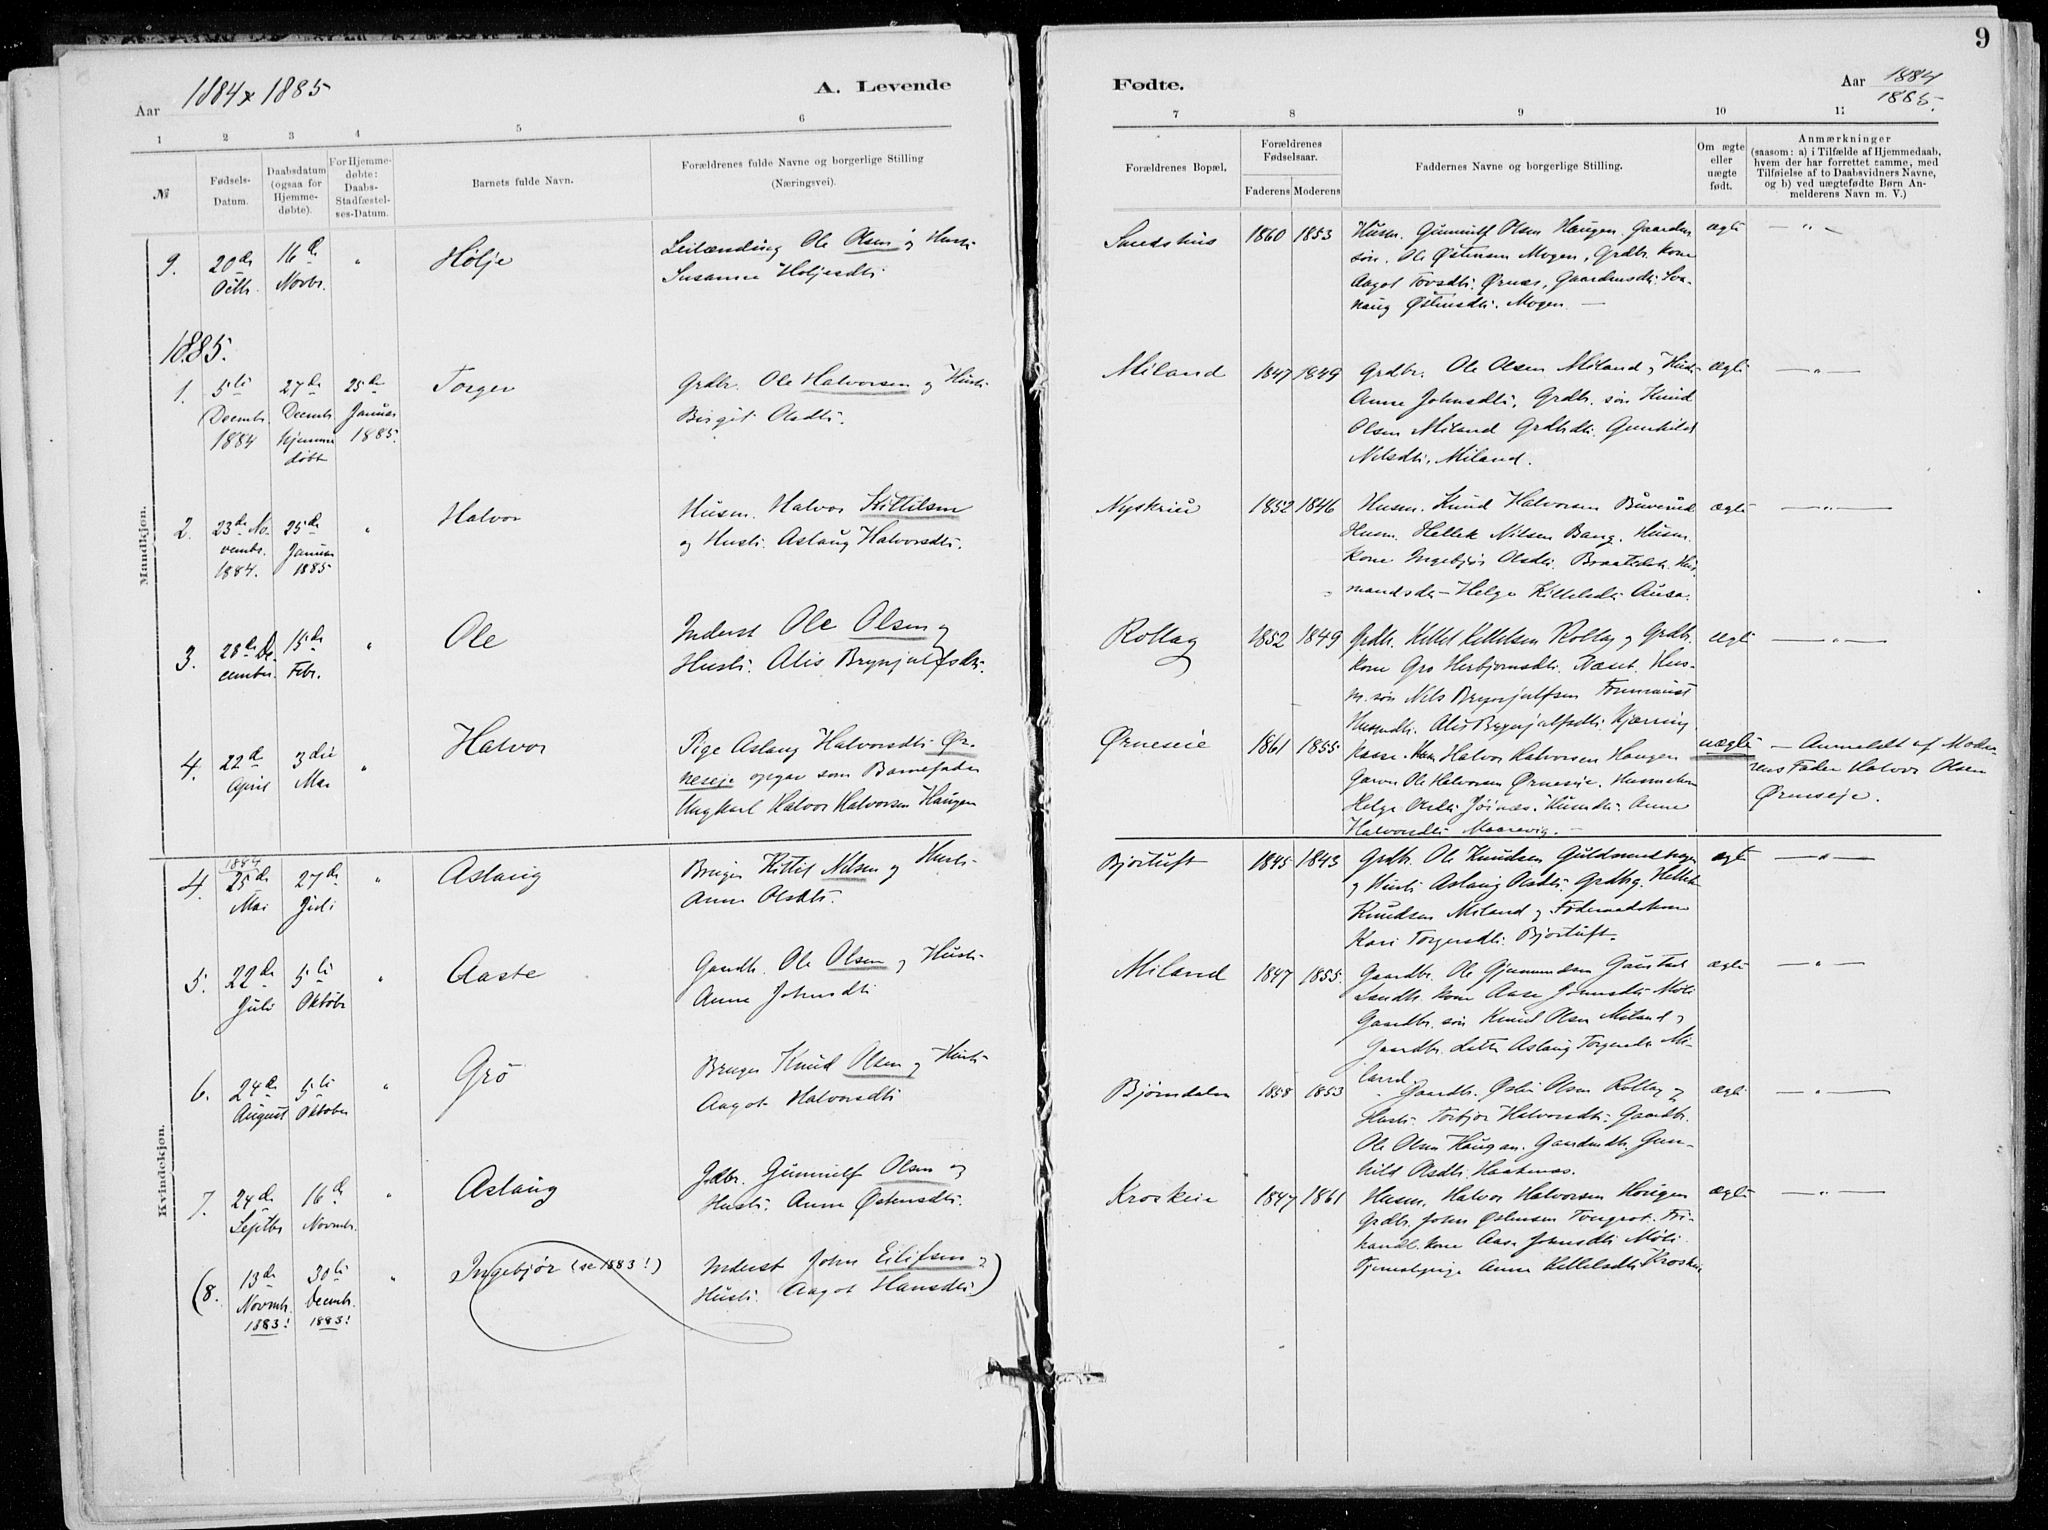 Aar 1884 & 1885
A. Levende
1 2 3 4 5 6
№
Fødsels-Datum.
Daabsdatum (ogsaa for Hjemme-døbte).
For Hjemme-døbte: Daabs-Stadfæstel-ses-Datum.
Barnets fulde Navn.
Forældrenes fulde Navne og borgerlige Stilling
(Næringsvei).
Mandkjøn.
9. 20de Octb. 16de Novbr. " Hølje
Leilænding Ole Olsen og Hustr:
Susanne Holjesdtr:
1885.
1. 5te Decembr. 1884 27de Decembr. hjemme døbt 25de Januar 1885. Torger
Grdbr. Ole Halvorsen og Hustr:
Birgit Olsdtr.
2. 23de Novembr. 1884. 25de Januar 1885 " Halvor
Husm. Halvor Kittilsen
og Hustr. Aslaug Halvorsdtr.
3. 28de December. 15de Febr. " Ole
Inderst Ole Olsen og
Hustr. Alis Brynjulfsdtr.
4. 22de April 3die Mai " Halvor
Pige Aslaug Halvorsdtr. Ør-
neseje opgav som Barnefader
Ungkarl Halvor Halvorsen Haugen
Kvindekjøn.
1884
4. 25de Mai 27de Juli " Aslaug
Bruger Kittil Nilsen og Hustr.
Anne Olsdtr.
5. 22de Juli 5te Oktobr " Aaste
Gaardb. Ole Olsen og Hustr.
Anne Johnsdtr
6. 24de August 5te Oktober " Gro
Bruger Knud Olsen og Hustr.
Aagot Halvorsdtr
7. 24de Septbr 16de Novmbr. " Aslaug
Gdbr. Gunnulf Olsen og
Hustr. Anne Østensdtr.
(8. 13de Novmbr. 1883! 30te Decmbr. 1883! " Ingebjør (se 1883!)
Inderst John Eilifsen og
Hustr. Aagot Hansdtr)
9
Fødte.
Aar 1884
1885.
7 8 9 10 11
Forældrenes Bopæl,
Forældrenes Fødselsaar.
Faderens Moderens
Faddernes Navne og borgerlige Stilling.
Om ægte eller uægte født.
Anmærkninger
(saasom: a) i Tilfælde af Hjemmedaab,
hvem der har forrettet samme, med
Tilføielse af to Daabsvidners Navne,
og b) ved uægtefødte Børn An-
melderens Navn m. V.)
1860 1853 Husm. Gunnulf Olsen Haugen. Gaardm. ægte — " —
søn. Ole Østensen Mogen, Grdbr. kone
Aagot Tovsdtr. Ørnæs, Gaardmdtr.
Østensdtr. Mogen —
Miland 1847 1849 Grdbr. Ole Olsen Miland og Hustr ægte — " —
Anne Johnsdtr, Grdbr. søn Knud
Olsen Miland Grdbdtr. Gunhild
Nilsdtr, Miland.
1852 1846 Husm. Knud Halvorsen ægte — " —
Husm. Hellek Nilsen Bang. Husm.
kone Ingebjør Olsdtr. Hus-
mandsdtr — Helge Kittilsdtr
Rollag 1852 1849 Grdbr. Kittel Kittelsen Rollag og Grdbr. ægte — " —
kone Gro Herbjørnsdtr. Næset. Hus-
m. søn Nils Brynjulfsen
Husmdtr. Alis Brynjulfsdtr. Kjærring
Ørneseie 1861 1855 Halvor Halvorsen Haugen uægte — Anmeldt af Mode-
Ole Halvorsen Ørneseie. rens Fader Halvor Olsen
Helge Olsdtr. Anne Ørneseje.
Halvorsdtr Maarevig. —
Bjortuft 1845 1843 Grdbr. Ole Knudsen ægte — " —
og Hustr. Aslaug Olsdtr. Grdbrg. Hellek
Knudsen Miland og Føderaadskone
Kari Torgersdtr. Bjortuft.
Miland 1847 1855. Gaardbr. Ole Gjermundsen Gaustad ægte — " —
Landh. kone Aase Johnsdtr Møli
Gaardbr. søn Knud Olsen Miland og
Gaardbr. datter Aslaug Torgersdtr Mi-
land.
Bjørndalen 1858 1853 Gaardb. Olsen Rollag og ægte — " —
Hustr. Torbjør Halvorsdtr. Gaardbr.
Ole Olsen Haugan. Gaardmdtr. Gun-
hild Olsdtr. Haakenæs.
Kroskeie 1847 1861 Husm. Halvor Halvorsen Haugen ægte — " —
Grdbr. John Østensen
handl. kone Aase Johnsdtr Møli
Tjenestepige Anne Kittelsdtr